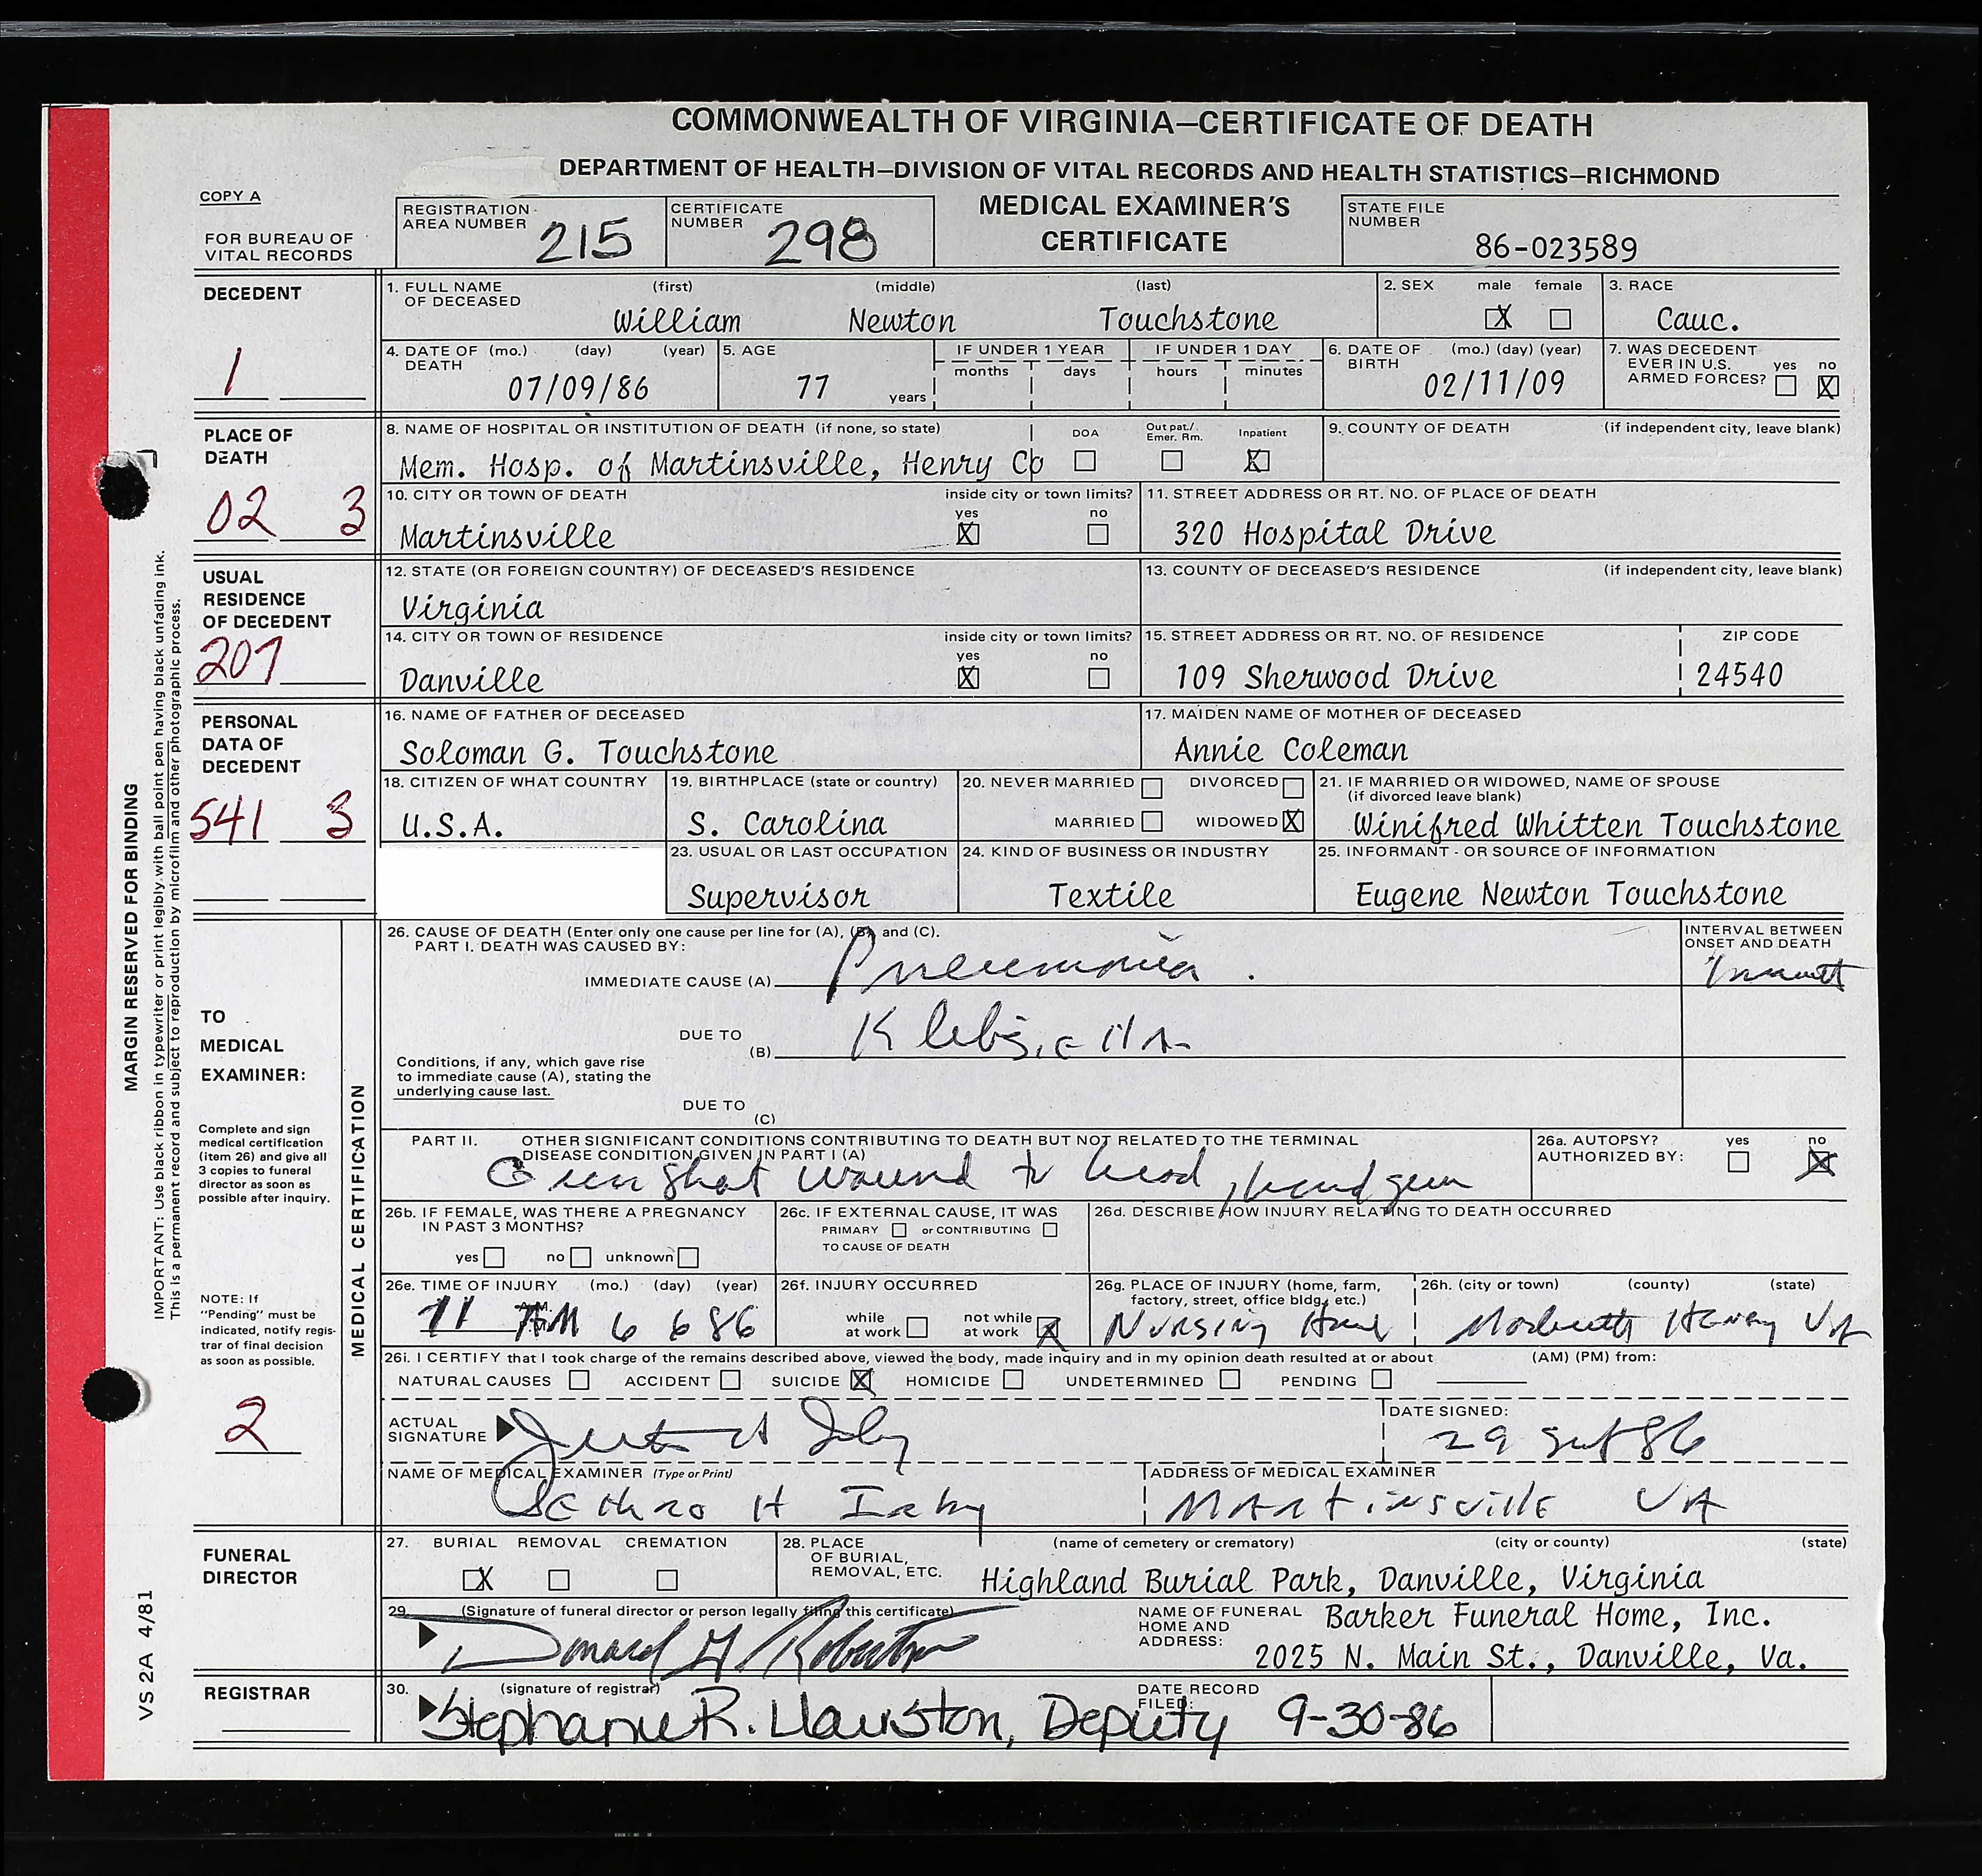 COMMONWEALTH OF VIRGINIA—CERTIFICATE OF DEATH
DEPARTMENT OF HEALTH—DIVISION OF VITAL RECORDS AND HEALTH STATISTICS—RICHMOND
COPY A
FOR BUREAU OF VITAL RECORDS
REGISTRATION AREA NUMBER 215
CERTIFICATE NUMBER 298
MEDICAL EXAMINER'S CERTIFICATE
STATE FILE NUMBER 86-023589
DECEDENT
1
1. FULL NAME OF DECEASED (first) (middle) (last)
William Newton Touchstone
2. SEX male female
X
3. RACE
Cauc.
4. DATE OF DEATH (mo.) (day) (year)
07/09/86
5. AGE
77 years
IF UNDER 1 YEAR
months days
IF UNDER 1 DAY
hours minutes
6. DATE OF BIRTH (mo.) (day) (year)
02/11/09
7. WAS DECEDENT EVER IN U.S. ARMED FORCES? yes no
X
PLACE OF DEATH
02 3
8. NAME OF HOSPITAL OR INSTITUTION OF DEATH (if none, so state)
Mem. Hosp. of Martinsville, Henry Co
DOA Out pat./ Emer. Rm. Inpatient
X
9. COUNTY OF DEATH (if independent city, leave blank)
10. CITY OR TOWN OF DEATH inside city or town limits?
yes no
Martinsville X
11. STREET ADDRESS OR RT. NO. OF PLACE OF DEATH
320 Hospital Drive
USUAL RESIDENCE OF DECEDENT
207
12. STATE (OR FOREIGN COUNTRY) OF DECEASED'S RESIDENCE
Virginia
13. COUNTY OF DECEASED'S RESIDENCE (if independent city, leave blank)
14. CITY OR TOWN OF RESIDENCE inside city or town limits?
yes no
Danville X
15. STREET ADDRESS OR RT. NO. OF RESIDENCE ZIP CODE
109 Sherwood Drive 24540
PERSONAL DATA OF DECEDENT
541 3
16. NAME OF FATHER OF DECEASED
Soloman G. Touchstone
17. MAIDEN NAME OF MOTHER OF DECEASED
Annie Coleman
18. CITIZEN OF WHAT COUNTRY
U.S.A.
19. BIRTHPLACE (state or country)
S. Carolina
20. NEVER MARRIED DIVORCED
MARRIED WIDOWED X
21. IF MARRIED OR WIDOWED, NAME OF SPOUSE
(if divorced leave blank)
Winifred Whitten Touchstone
23. USUAL OR LAST OCCUPATION
Supervisor
24. KIND OF BUSINESS OR INDUSTRY
Textile
25. INFORMANT - OR SOURCE OF INFORMATION
Eugene Newton Touchstone
MARGIN RESERVED FOR BINDING
IMPORTANT: Use black ribbon in typewriter or print legibly with ball point pen having black unfading ink.
This is a permanent record and subject to reproduction by microfilm and other photographic process.
VS 2A 4/81
TO MEDICAL EXAMINER:
Complete and sign medical certification (item 26) and give all 3 copies to funeral director as soon as possible after inquiry.
NOTE: If "Pending" must be indicated, notify registrar of final decision as soon as possible.
2
MEDICAL CERTIFICATION
26. CAUSE OF DEATH (Enter only one cause per line for (A), (B) and (C).
PART I. DEATH WAS CAUSED BY:
IMMEDIATE CAUSE (A) Pneumonia.
INTERVAL BETWEEN ONSET AND DEATH
DUE TO (B) Klebsiella
Conditions, if any, which gave rise to immediate cause (A), stating the underlying cause last.
DUE TO (C)
PART II. OTHER SIGNIFICANT CONDITIONS CONTRIBUTING TO DEATH BUT NOT RELATED TO THE TERMINAL DISEASE CONDITION GIVEN IN PART I (A)
Gunshot wound to head, handgun
26a. AUTOPSY? yes no
AUTHORIZED BY: X
26b. IF FEMALE, WAS THERE A PREGNANCY IN PAST 3 MONTHS?
yes no unknown
26c. IF EXTERNAL CAUSE, IT WAS
PRIMARY or CONTRIBUTING
TO CAUSE OF DEATH
26d. DESCRIBE HOW INJURY RELATING TO DEATH OCCURRED
26e. TIME OF INJURY (mo.) (day) (year)
11 AM 6 6 86
26f. INJURY OCCURRED
while at work not while at work X
26g. PLACE OF INJURY (home, farm, factory, street, office bldg., etc.)
Nursing Home
26h. (city or town) (county) (state)
Henry VA
26i. I CERTIFY that I took charge of the remains described above, viewed the body, made inquiry and in my opinion death resulted at or about (AM) (PM) from:
NATURAL CAUSES ACCIDENT SUICIDE X HOMICIDE UNDETERMINED PENDING
ACTUAL SIGNATURE
DATE SIGNED:
29 Sept 86
NAME OF MEDICAL EXAMINER (Type or Print)
Jethro H Irby
ADDRESS OF MEDICAL EXAMINER
Martinsville VA
FUNERAL DIRECTOR
27. BURIAL REMOVAL CREMATION
X
28. PLACE OF BURIAL, REMOVAL, ETC. (name of cemetery or crematory) (city or county) (state)
Highland Burial Park, Danville, Virginia
29. (Signature of funeral director or person legally filing this certificate)
NAME OF FUNERAL HOME AND ADDRESS:
Barker Funeral Home, Inc.
2025 N. Main St., Danville, Va.
REGISTRAR
30. (signature of registrar)
Stephanie R. Hairston, Deputy
DATE RECORD FILED:
9-30-86